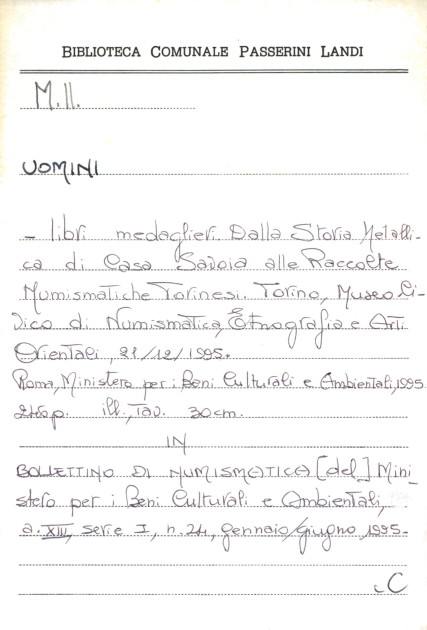 BIBLIOTECA COMUNALE PASSERINI LANDI
M.II.
UOMINI
- libri medaglieri. Dalla Storia Metalli-
ca di Casa Savoia alle Raccolte
Numismatiche Torinesi. Torino, Museo Ci-
vico di Numismatica, Etnografia e Arti
Orientali, 21/12/1995.
Roma, Ministero per i Beni Culturali e Ambientali, 1995
p. ill., Tav. 30 cm.
IN
BOLLETTINO DI NUMISMATICA [del] Mini_
stero per i Beni Culturali e Ambientali,
a. XIII, serie I, n. 24, gennaio/giugno 1995.
C